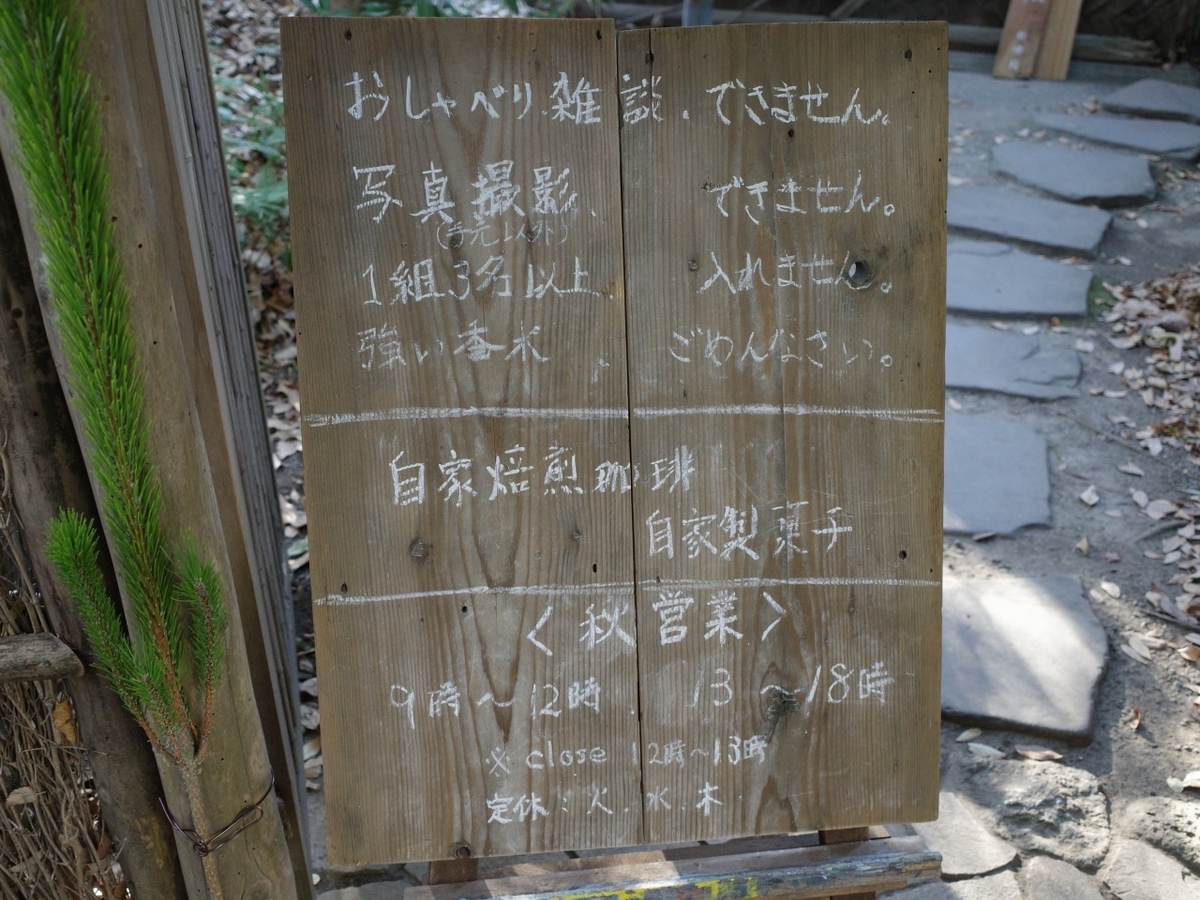 おしゃべり、雑談、できません。
写真撮影、できません。
(手元以外)
1組3名以上、入れません。
強い香水、ごめんなさい。
自家焙煎珈琲
自家製菓子
〈秋営業〉
9時〜12時、13〜18時
※close 12時〜13時
定休:火、水、木